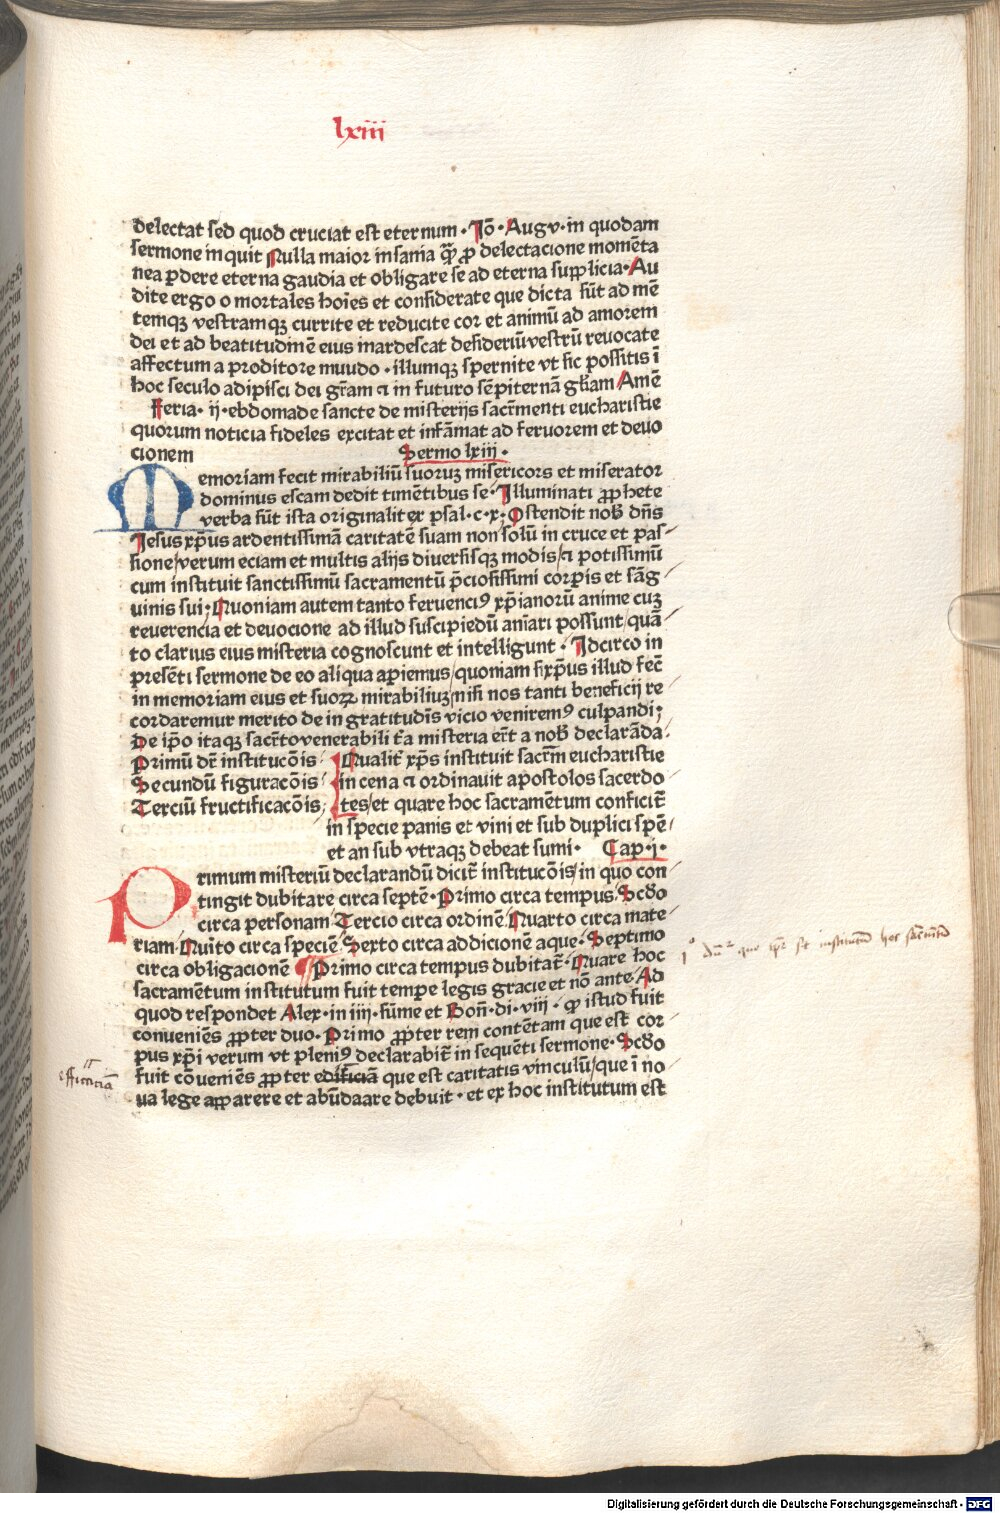 lxiii
delectat sed quod cruciat est eternum · Jō · Augv · in quodam
sermone inquit Nulla maior insania q̄ꝫ ꝓ delectacione momēta
nea ꝑdere eterna gaudia et obligare se ad eterna supplicia · Au
dite ergo o mortales hoīes et considerate que dicta sūt ad mē
temqꝫ vestramqꝫ currite et reducite cor et animū ad amorem
dei et ad beatitudinē eius inardescat desideriū vestrū reuocate
affectum a proditore muudo · illumqꝫ spernite vt sic possitis ī
hoc seculo adipisci dei gr̄am ⁊ in futuro sēpiternā gl̄iam Amē
Feria · ij · ebdomade sancte de misterijs sacr̄menti eucharistie
quorum noticia fideles excitat et inflāmat ad feruorem et deuo
cionem Sermo lxiii ·
Memoriam fecit mirabiliū suoruꝫ misericors et miserator
dominus escam dedit timētibus se · Illuminati ꝓphete
verba sūt ista originalit̄ ex psal · c · x · Ostendit nob̄ dn̄s
Jesus xp̄us ardentissimā caritatē suam non solū in cruce et pas
sione/verum eciam et multis alijs diuersisqꝫ modis/⁊ potissimū
cum instituit sanctissimū sacramentū p̄ciosissimi corꝑis et sāg
vinis sui · Quoniam autem tanto feruenciꝰ xp̄ianorū anime cuꝫ
reuerencia et deuocione ad illud suscipiedū aniari possunt/quā
to clarius eius misteria cognoscunt et intelligunt · Idcirco in
presēti sermone de eo aliqua apiemus/quoniam si xp̄us illud fec̄
in memoriam eius et suoꝝ mirabiliuꝫ/nisi nos tanti beneficij re
cordaremur merito de ingratitudīs vicio veniremꝰ culpandi;
De ip̄o itaqꝫ sacr̄to venerabili t̄a misteria er̄t a nob̄ declarāda
Primū dr̄ institucōis
Secundū figuracōis
Terciū fructificacōis;
Qualit̄ xp̄s instituit sacr̄m eucharistie
in cena ⁊ ordinauit apostolos sacerdo
tes/et quare hoc sacramētum conficit̄
in specie panis et vini et sub duplici spē
et an sub vtraqꝫ debeat sumi · Cap · j ·
Primum misteriū declarandū dicit̄ institucōis/in quo con
tingit dubitare circa septē · Primo circa tempus/Scd̄o
circa personam Tercio circa ordinē Quarto circa mate
riam · Quīto circa speciē Sexto circa addicionē aque · Septimo
circa obligacionē ¶ Primo circa tempus dubitat̄ · Quare hoc
sacramētum institutum fuit tempe legis gracie et nō ante · Ad
quod respondet Alex · in iiij · sūme et Bon̄ · di · viij · ꝙ istud fuit
conueniēs ꝓpter duo · Primo ꝓpter rem contētam que est cor
pus xp̄i verum vt pleniꝰ declarabit̄ in sequēti sermone · Scd̄o
fuit cōueniēs ꝓpter edificiā que est caritatis vinculū/que ī no
ua lege apparere et abūdaare debuit · et ex hoc institutum est
efficiēciā
Digitalisierung gefördert durch die Deutsche Forschungsgemeinschaft - DFG